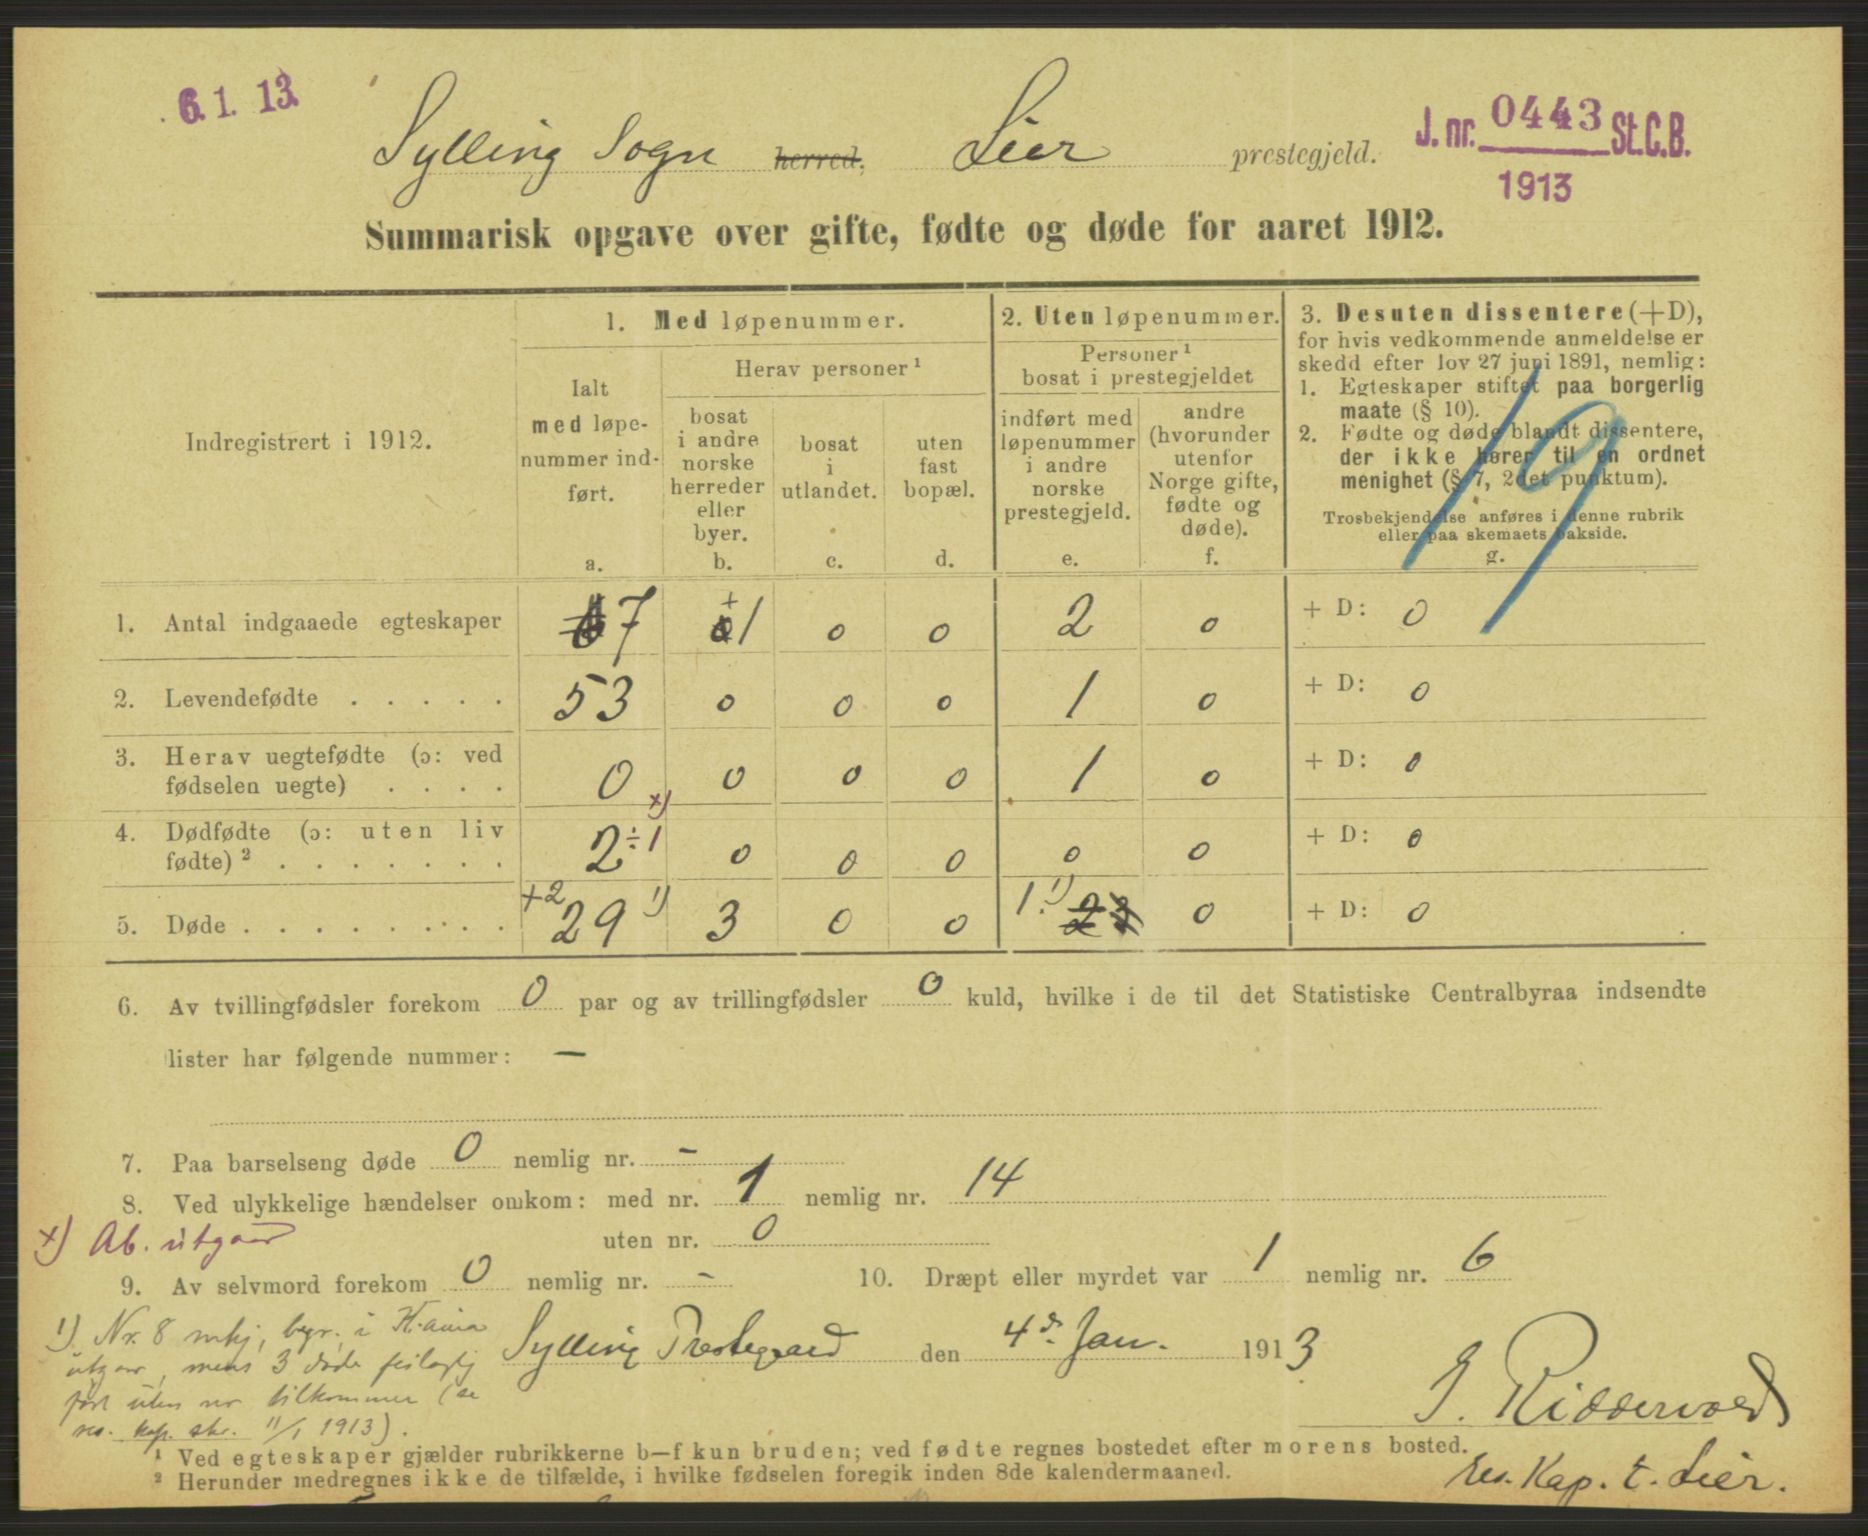 6. 1. 13.
J. nr. 0443 St.C.B.
1913
Sylling Sogn herred, Lier prestegjeld.
Summarisk opgave over gifte, fødte og døde for aaret 1912.
Indregistrert i 1912.
1. Med løpenummer.
Ialt
med løpe-
nummer ind-
ført.
a.
Herav personer ¹
bosat
i andre
norske
herreder
eller
byer.
b.
bosat
i
utlandet.
c.
uten
fast
bopæl.
d.
2. Uten løpenummer.
Personer ¹
bosat i prestegjeldet
indført med
løpenummer
i andre
norske
prestegjeld.
e.
andre
(hvorunder
utenfor
Norge gifte,
fødte og
døde).
f.
3. Desuten dissentere (+D),
for hvis vedkommende anmeldelse er
skedd efter lov 27 juni 1891, nemlig:
1. Egteskaper stiftet paa borgerlig
maate (§ 10).
2. Fødte og døde blandt dissentere,
der ikke hører til en ordnet
menighet (§ 7, 2det punktum).
Trosbekjendelse anføres i denne rubrik
eller paa skemaets bakside.
g.
19
1. Antal indgaaede egteskaper 7 + 0 1 0 0 2 0 + D: 0
2. Levendefødte . . . . . 53 0 0 0 1 0 + D: 0
3. Herav uegtefødte (ɔ: ved
fødselen uegte) . . . . 0 0 0 0 1 0 + D: 0
4. Dødfødte (ɔ: uten liv
fødte) ² . . . . . . . 2 ÷ 1 x) 0 0 0 0 0 + D: 0
5. Døde . . . . . . . . . +2 29 1) 3 0 0 1. 1) 23 0 + D: 0
6. Av tvillingfødsler forekom 0 par og av trillingfødsler 0 kuld, hvilke i de til det Statistiske Centralbyraa indsendte
lister har følgende nummer: —
7. Paa barselseng døde 0 nemlig nr. -
8. Ved ulykkelige hændelser omkom: med nr. 1 nemlig nr. 14
x) Ab. utgaar
uten nr. 0
9. Av selvmord forekom 0 nemlig nr. - 10. Dræpt eller myrdet var 1 nemlig nr. 6
1) Nr. 8 mkj, begr. i
utgaar, mens 3 døde feilagtig
ført uten nr tilkommer (se
res. kap. skr. 11/1 1913).
Sylling Prestegaard den 4de Jan. 1913
J. Riddervold
res. Kap. t. Lier.
¹ Ved egteskaper gjælder rubrikkerne b—f kun bruden; ved fødte regnes bostedet efter morens bosted.
² Herunder medregnes ikke de tilfælde, i hvilke fødselen foregik inden 8de kalendermaaned.